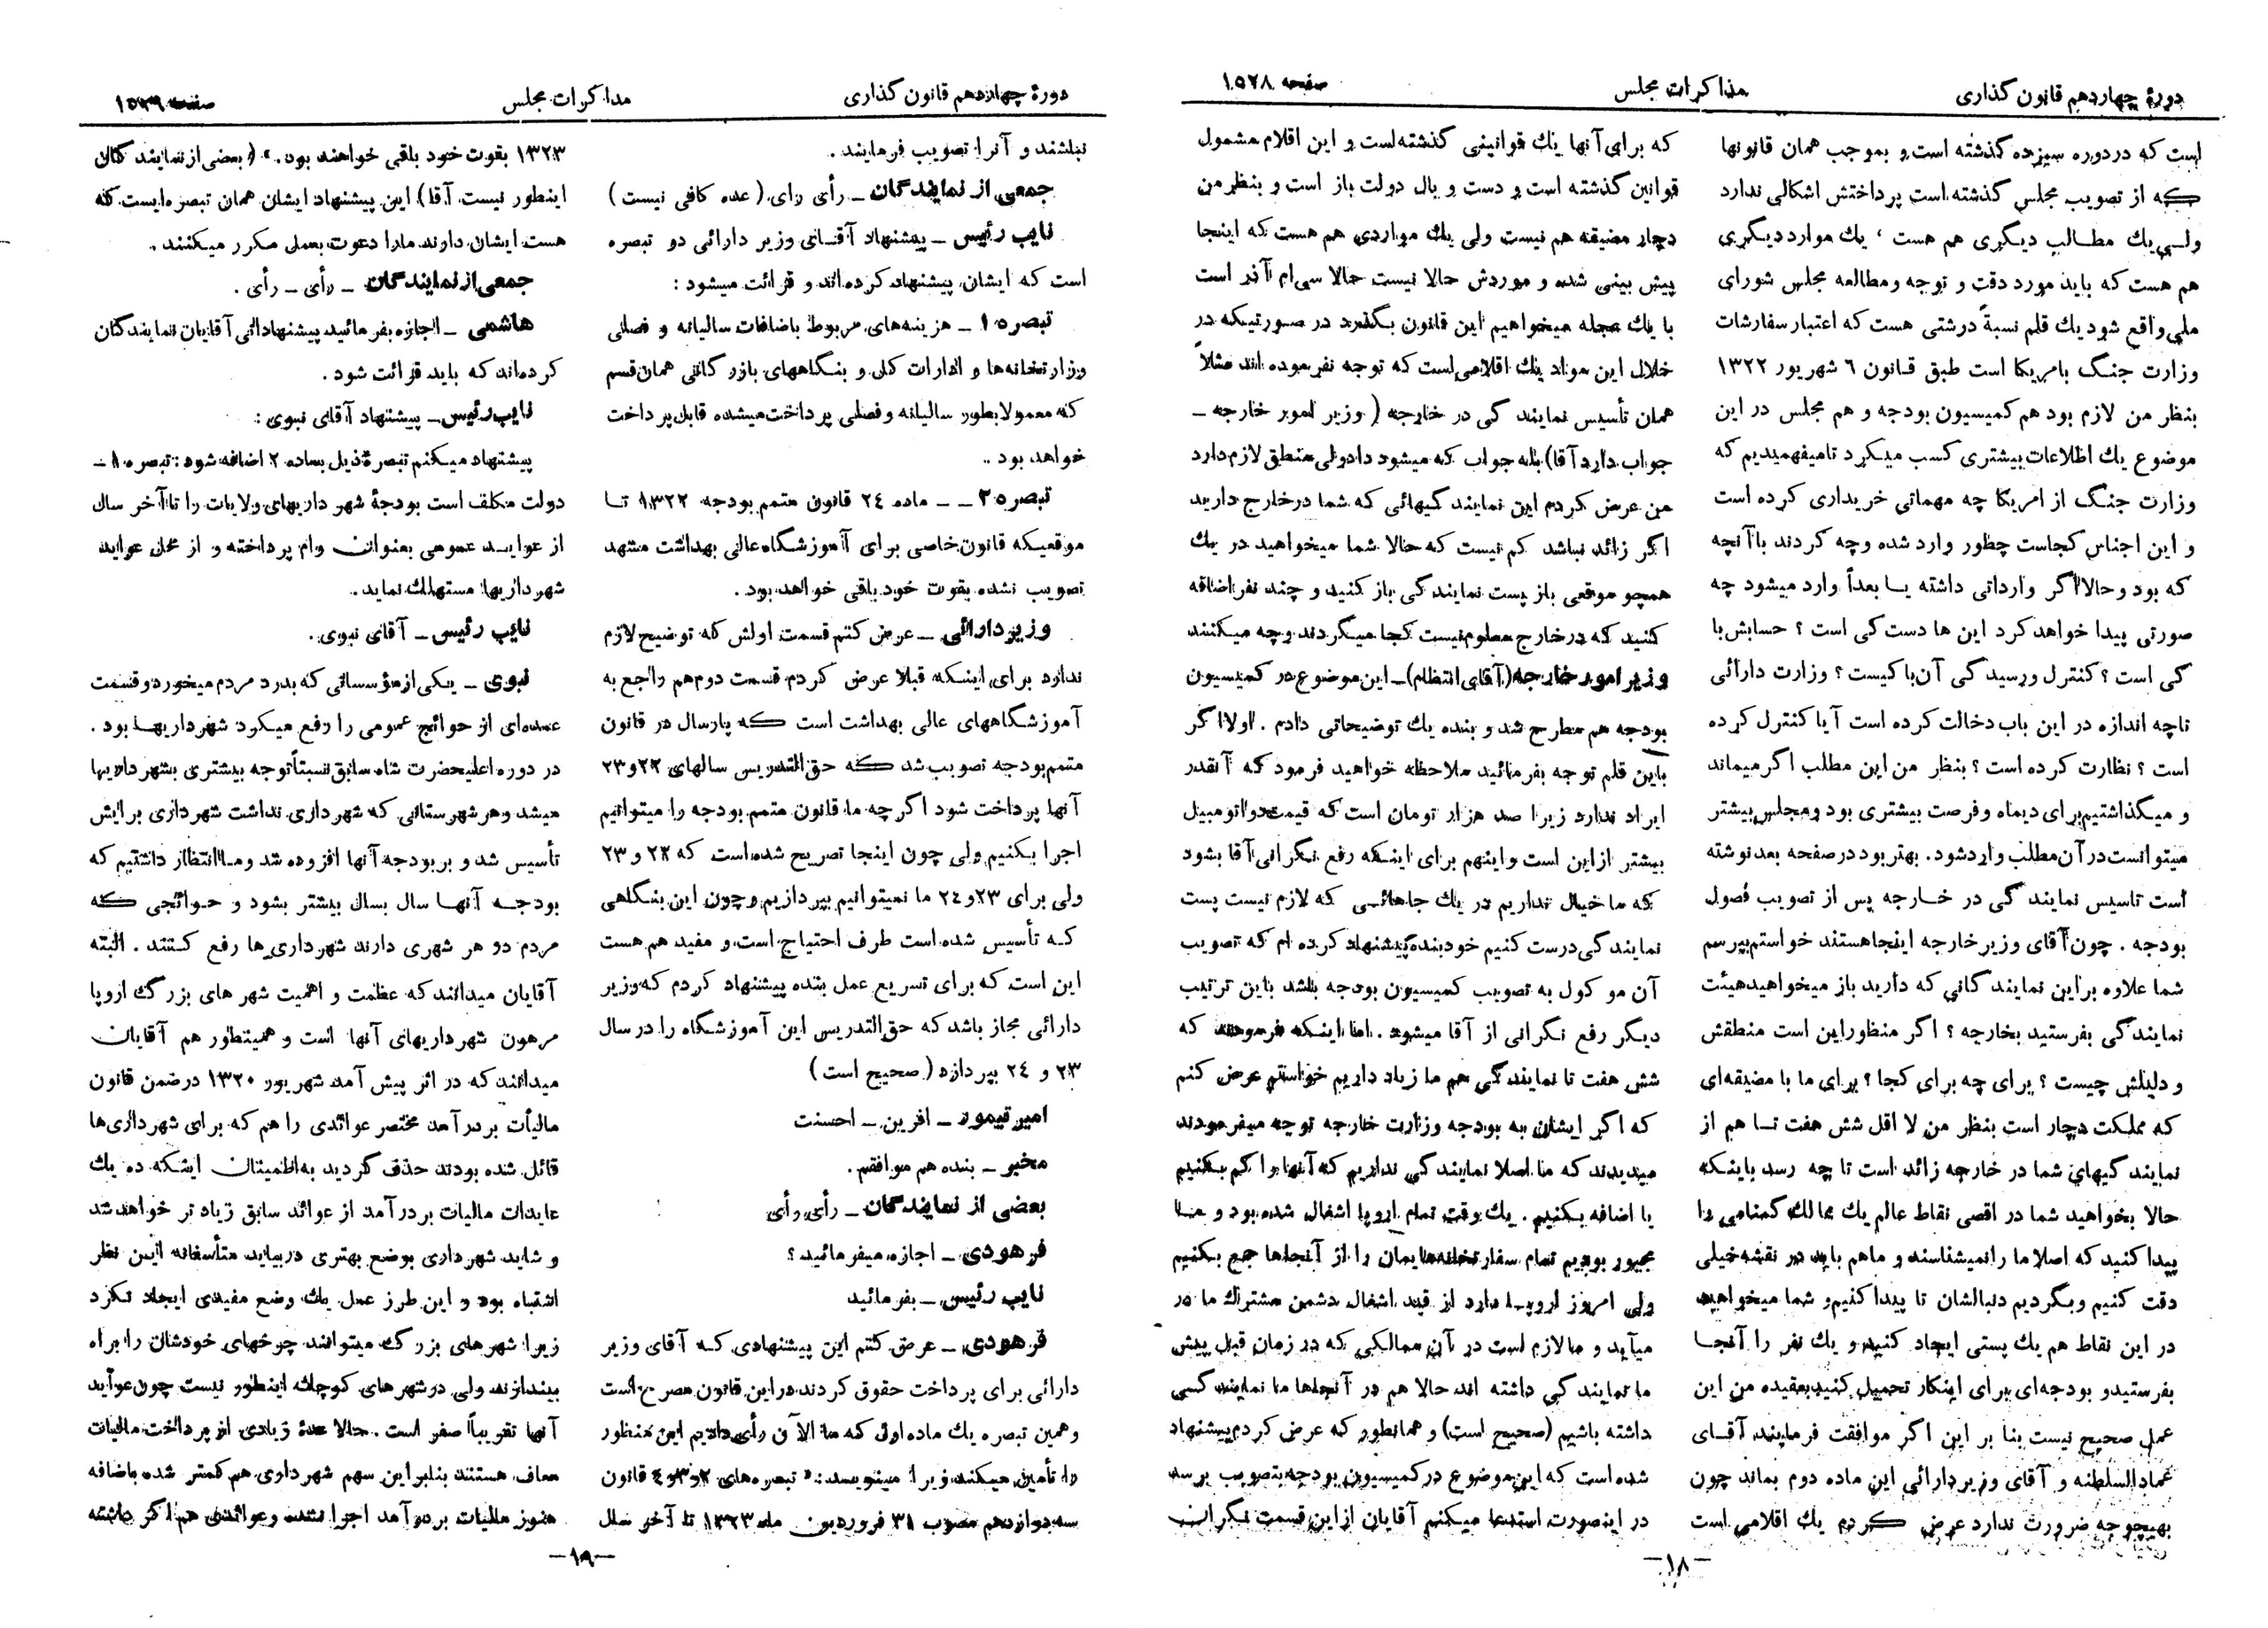 دورهٔ چهاردهم قانون گذاری
مذاکرات مجلس
صفحه ۱۵۲۸
است که در دوره سیزده گذشته است و بموجب همان قانونها
که از تصویب مجلس گذشته است پرداختش اشکالی ندارد
ولی یك مطالب دیگری هم هست ، یك موارد دیگری
هم هست که باید مورد دقت و توجه و مطالعه مجلس شورای
ملی واقع شود یك قلم نسبةً درشتی هست که اعتبار سفارشات
وزارت جنگ بامریکا است طبق قانون ۶ شهریور ۱۳۲۲
بنظر من لازم بود هم کمیسیون بودجه و هم مجلس در این
موضوع یك اطلاعات بیشتری کسب میکرد تا میفهمیدیم که
وزارت جنگ از امریکا چه مهماتی خریداری کرده است
و این اجناس کجاست چطور وارد شده وچه کردند با آنچه
که بود و حالا اگر وارداتی داشته یا بعداً وارد میشود چه
صورتی پیدا خواهد کرد این ها دست کی است ؟ حسابش با
کی است ؟ کنترل ورسید گی آن با کیست ؟ وزارت دارائی
تاچه اندازه در این باب دخالت کرده است آیا کنترل کرده
است ؟ نظارت کرده است ؟ بنظر من این مطلب اگر میماند
و میگذاشتیم برای دیماه و فرصت بیشتری بود و مجلس بیشتر
میتوانست در آن مطلب وارد شود. بهتر بود در صفحه بعد نوشته
است تاسیس نمایند گی در خارجه پس از تصویب فصول
بودجه . چون آقای وزیر خارجه اینجا هستند خواستم بپرسم
شما علاوه بر این نمایند گانی که دارید باز میخواهید هیئت
نمایند گی بفرستید بخارجه ؟ اگر منظور این است منطقش
و دلیلش چیست ؟ برای چه برای کجا ؟ برای ما با مضیقه‌ای
که مملکت دچار است بنظر من لا اقل شش هفت تا هم از
نمایند گیهای شما در خارجه زائد است تا چه رسد باینکه
حالا بخواهید شما در اقصی نقاط عالم یك ممالك گمنامی را
پیدا کنید که اصلا ما را نمیشناسند و ماهم باید در نقشه خیلی
دقت کنیم وبگردیم دنبالشان تا پیدا کنیم و شما میخواهید
در این نقاط هم یك پستی ایجاد کنید و یك نفر را آنجا
بفرستید و بودجه‌ای برای اینکار تحمیل کنید بعقیده من این
عمل صحیح نیست بنا بر این اگر موافقت فرمایند آقای
عمادالسلطنه و آقای وزیر دارائی این ماده دوم بماند چون
بهیچوجه ضرورت ندارد عرض کردم یك اقلامی است
که برای آنها یك قوانینی گذشته است و این اقلام مشمول
قوانین گذشته است و دست و بال دولت باز است و بنظر من
دچار مضیقه هم نیست ولی یك مواردی هم هست که اینجا
پیش بینی شده و موردش حالا نیست حالا سی‌ام آذر است
با یك عجله میخواهیم این قانون بگذرد در صورتیکه در
خلال این مواد یك اقلامی است که توجه نفرموده اند مثلاً
همان تأسیس نمایند گی در خارجه ( وزیر امور خارجه ـ
جواب دارد آقا) بله جواب که میشود داد ولی منطق لازم دارد
من عرض کردم این نمایند گیهائی که شما در خارج دارید
اگر زائد نباشد کم نیست که حالا شما میخواهید در یك
همچو موقعی باز پست نمایند گی باز کنید و چند نفر اضافه
کنید که در خارج معلوم نیست کجا میگردند و چه میکنند
وزیر امور خارجه (آقای انتظام) ـ این موضوع در کمیسیون
بودجه هم مطرح شد و بنده یك توضیحاتی دادم . اولا اگر
باین قلم توجه بفرمائید ملاحظه خواهید فرمود که آنقدر
ایراد ندارد زیرا صد هزار تومان است که قیمت دو اتومبیل
بیشتر از این است و اینهم برای اینکه رفع نگرانی آقا بشود
که ما خیال نداریم در یك جاهائی که لازم نیست پست
نمایند گی درست کنیم خود بنده پیشنهاد کرده ام که تصویب
آن مو کول به تصویب کمیسیون بودجه باشد باین ترتیب
دیگر رفع نگرانی از آقا میشود . اما اینکه فرمودند که
شش هفت تا نمایند گی هم ما زیاد داریم خواستم عرض کنم
که اگر ایشان به بودجه وزارت خارجه توجه میفرمودند
میدیدند که ما اصلا نمایند گی نداریم که آنها را کم بکنیم
یا اضافه بکنیم . یك وقت تمام اروپا اشغال شده بود و ما
مجبور بودیم تمام سفارتخانه‌هایمان را از آنجاها جمع بکنیم
ولی امروز اروپا دارد از قید اشغال دشمن مشترك ما در
میآید و ما لازم است در آن ممالکی که در زمان قبل پیش
ما نمایند گی داشته اند حالا هم در آنجاها ما نمایند گی
داشته باشیم (صحیح است) و همانطور که عرض کردم پیشنهاد
شده است که این موضوع در کمیسیون بودجه بتصویب برسد
در اینصورت استدعا میکنم آقایان از این قسمت نگران
ـ۱۸ـ
دورهٔ چهاردهم قانون گذاری
مذاکرات مجلس
صفحه ۱۵۲۹
نباشند و آنرا تصویب فرمایند .
جمعی از نمایندگان ـ رأی رای ( عده کافی نیست )
نایب رئیس ـ پیشنهاد آقای وزیر دارائی دو تبصره
است که ایشان پیشنهاد کرده‌اند و قرائت میشود :
تبصره ۱ ـ هزینه‌های مربوط باضافات سالیانه و فصلی
وزارتخانه‌ها و ادارات کل و بنگاههای بازرگانی همان قسم
که معمولا بطور سالیانه و فصلی پرداخت میشده قابل پرداخت
خواهد بود .
تبصره ۲ ـ ـ ماده ۲۴ قانون متمم بودجه ۱۳۲۲ تا
موقعیکه قانون خاصی برای آموزشگاه عالی بهداشت مشهد
تصویب نشده بقوت خود باقی خواهد بود .
وزیر دارائی ـ عرض کنم قسمت اولش که توضیح لازم
ندارد برای اینکه قبلا عرض کردم قسمت دوم هم راجع به
آموزشگاههای عالی بهداشت است که پارسال در قانون
متمم بودجه تصویب شد که حق التدریس سالهای ۲۲ و ۲۳
آنها پرداخت شود اگر چه ما قانون متمم بودجه را میتوانیم
اجرا بکنیم ولی چون اینجا تصریح شده است که ۲۲ و ۲۳
ولی برای ۲۳ و ۲۴ ما نمیتوانیم بپردازیم و چون این بنگاهی
که تأسیس شده است طرف احتیاج است و مفید هم هست
این است که برای تسریع عمل بنده پیشنهاد کردم که وزیر
دارائی مجاز باشد که حق التدریس این آموزشگاه را در سال
۲۳ و ۲۴ بپردازد ( صحیح است )
امیر تیمور ـ افرین ـ احسنت
مخبر ـ بنده هم موافقم .
بعضی از نمایندگان ـ رأی رأی
فرهودی ـ اجازه میفرمائید ؟
نایب رئیس ـ بفرمائید
فرهودی ـ عرض کنم این پیشنهادی که آقای وزیر
دارائی برای پرداخت حقوق کردند در این قانون مصرح است
و همین تبصره یك ماده اول که ما الآن رأی دادیم این منظور
را تأمین میکند زیرا مینویسد : « تبصره‌های ۲ و ۳ و ۴ قانون
سه دوازدهم مصوب ۳۱ فروردین ماه ۱۳۲۳ تا آخر سال
۱۳۲۳ بقوت خود باقی خواهند بود . » ( بعضی از نمایندگان
اینطور نیست آقا ) این پیشنهاد ایشان همان تبصره ایست که
هست ایشان دارند ما را دعوت بعمل مکرر میکنند .
جمعی از نمایندگان ـ رأی ـ رأی .
هاشمی ـ اجازه بفرمائید پیشنهاداتی آقایان نمایندگان
کرده‌اند که باید قرائت شود .
نایب رئیس ـ پیشنهاد آقای نبوی :
پیشنهاد میکنم تبصرهٔ ذیل بماده ۲ اضافه شود : تبصره ۱ ـ
دولت مکلف است بودجهٔ شهرداریهای ولایات را تا آخر سال
از عواید عمومی بعنوان وام پرداخته و از محل عواید
شهرداریها مستهلك نماید .
نایب رئیس ـ آقای نبوی .
نبوی ـ یکی از مؤسساتی که بدرد مردم میخورد و قسمت
عمده‌ای از حوائج عمومی را رفع میکرد شهرداریها بود .
در دوره اعلیحضرت شاه سابق نسبتاً توجه بیشتری بشهرداریها
میشد و هر شهرستانی که شهرداری نداشت شهرداری برایش
تأسیس شد و بر بودجه آنها افزوده شد و ما انتظار داشتیم که
بودجه آنها سال بسال بیشتر بشود و حوائجی که
مردم در هر شهری دارند شهرداری‌ها رفع کنند . البته
آقایان میدانند که عظمت و اهمیت شهر های بزرگ اروپا
مرهون شهرداریهای آنها است و همینطور هم آقایان
میدانند که در اثر پیش آمد شهریور ۱۳۲۰ در ضمن قانون
مالیات بر درآمد مختصر عوائدی را هم که برای شهرداری‌ها
قائل شده بودند حذف گردید به اطمینان اینکه ده یك
عایدات مالیات بر درآمد از عوائد سابق زیاد تر خواهد شد
و شاید شهرداری بوضع بهتری دربیاید متأسفانه این نظر
اشتباه بود و این طرز عمل یك وضع مفیدی ایجاد نکرد
زیرا شهرهای بزرگ میتوانند چرخهای خودشان را براه
بیندازند ولی در شهرهای کوچك اینطور نیست چون عواید
آنها تقریباً صفر است . حالا عدهٔ زیادی از پرداخت مالیات
معاف هستند بنابراین سهم شهرداری هم کمتر شده باضافه
هنوز مالیات بر درآمد اجرا نشده و عوائدی هم اگر داشته
ـ۱۹ـ